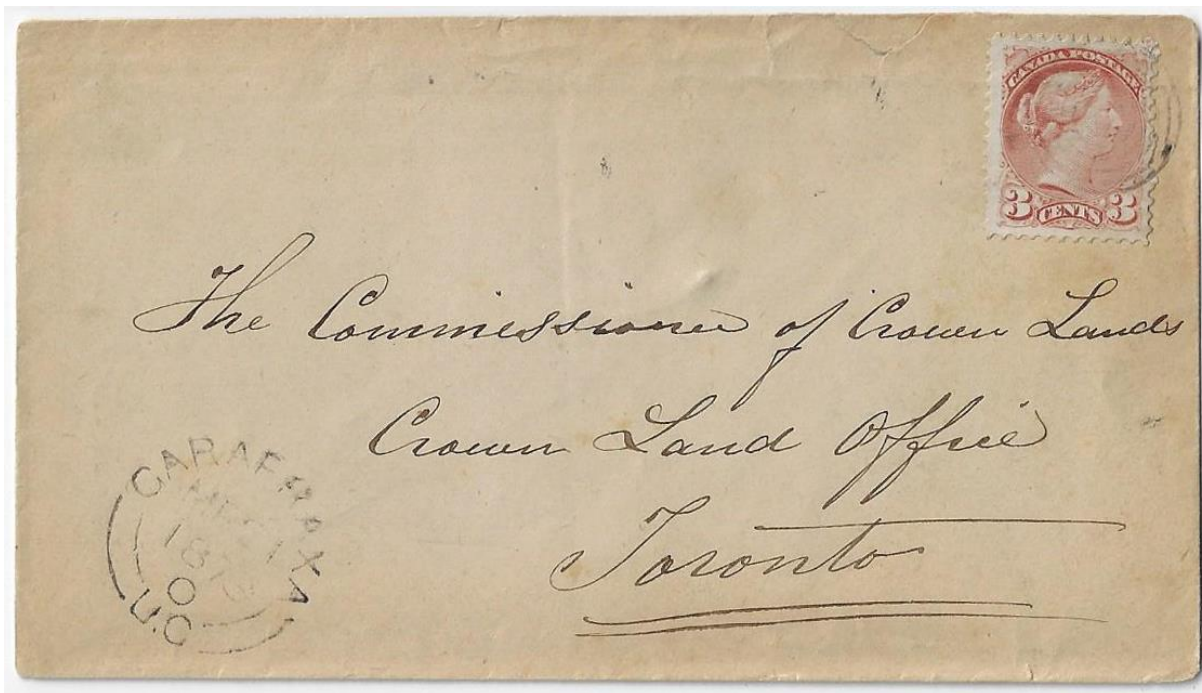 CANADA POSTAGE
3 CENTS 3
The Commissioner of Crown Lands
Crown Land Office
Toronto
CARAFRAXA
U.C.